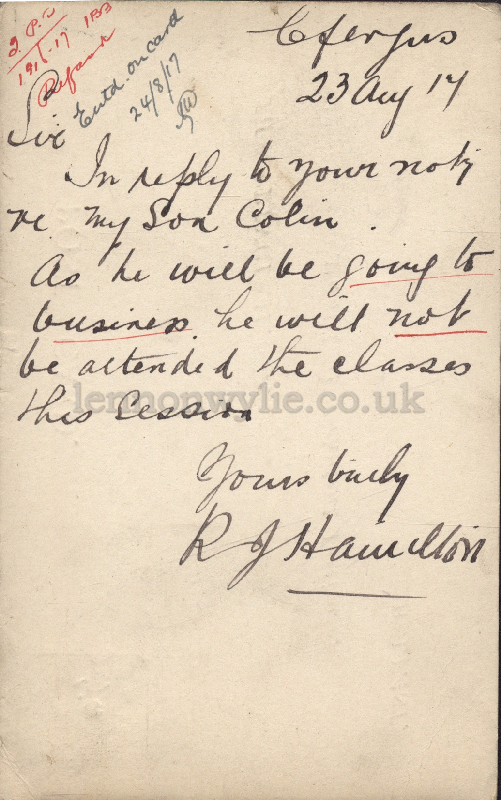 1916-17 IBB
Entd. on card
24/8/17
Cfergus
23 Aug 17
Sir
In reply to your note
re my Son Colin.
As he will be going to
business he will not
be attended the classes
this Session
Yours truly
R J Hamilton
lennonwylie.co.uk